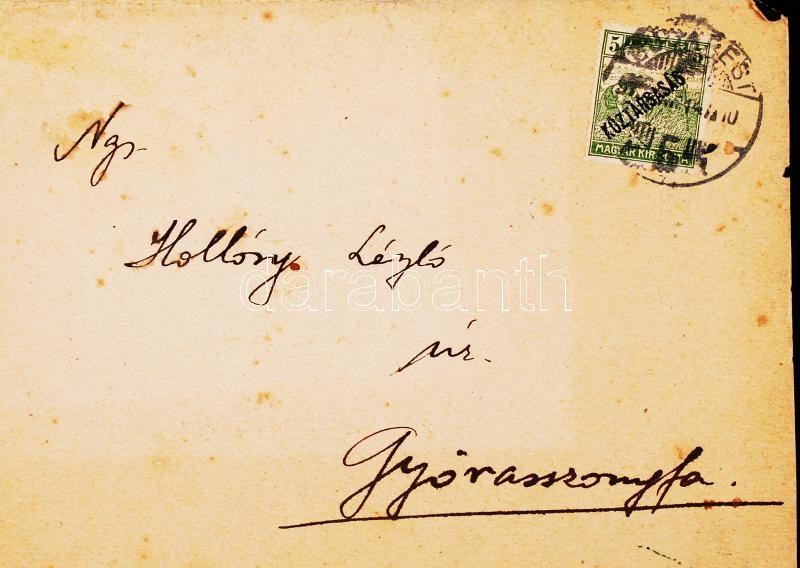 5
KÖZTÁRSASÁG
MAGYAR KIR. POSTA
Ngs.
Hollóry László
darabanth
úr.
Győrasszonyfa.